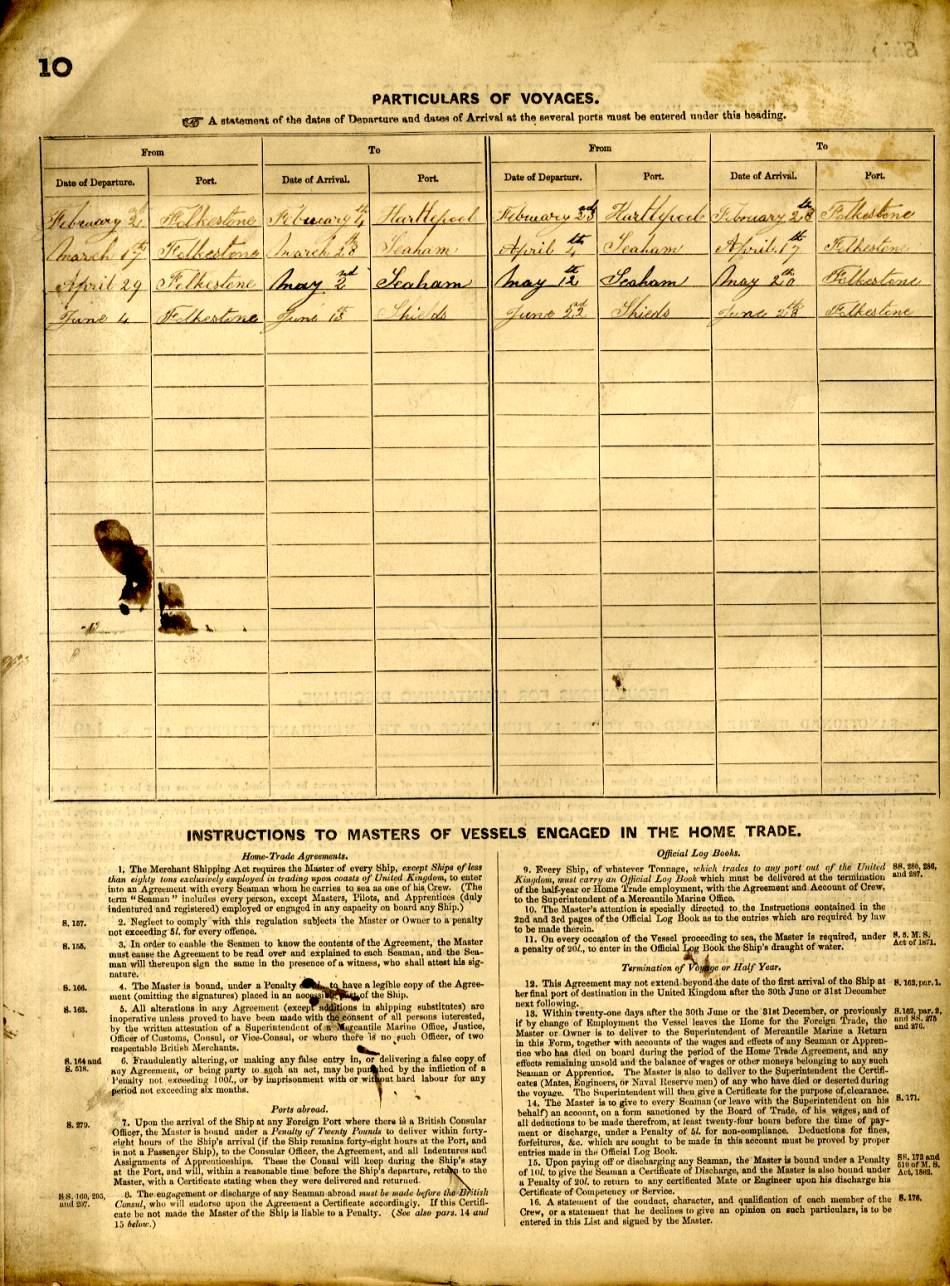 10
PARTICULARS OF VOYAGES.
☞ A statement of the dates of Departure and dates of Arrival at the several ports must be entered under this heading.
From To From To
Date of Departure. Port. Date of Arrival. Port. Date of Departure. Port. Date of Arrival. Port.
February Folkestone February 4 Hartlepool February 23rd Hartlepool February 28th Folkestone
March 17th Folkestone March Seaham April 4th Seaham April 17th Folkestone
April 29 Folkestone May 2nd Seaham May 12th Seaham May 20th Folkestone
June 4 Folkestone June Shields June 22nd Shieds June 28th Folkestone
INSTRUCTIONS TO MASTERS OF VESSELS ENGAGED IN THE HOME TRADE.
Home-Trade Agreements.
1. The Merchant Shipping Act requires the Master of every Ship, except Ships of less
than eighty tons exclusively employed in trading upon coasts of United Kingdom, to enter
into an Agreement with every Seaman whom he carries to sea as one of his Crew. (The
term "Seaman" includes every person, except Masters, Pilots, and Apprentices (duly
indentured and registered) employed or engaged in any capacity on board any Ship.)
S. 157. 2. Neglect to comply with this regulation subjects the Master or Owner to a penalty
not exceeding 5l. for every offence.
S. 155. 3. In order to enable the Seamen to know the contents of the Agreement, the Master
must cause the Agreement to be read over and explained to each Seaman, and the Sea-
man will thereupon sign the same in the presence of a witness, who shall attest his sig-
nature.
S. 166. 4. The Master is bound, under a Penalty to have a legible copy of the Agree-
ment (omitting the signatures) placed in an accessible part of the Ship.
S. 163. 5. All alterations in any Agreement (except additions in shipping substitutes) are
inoperative unless proved to have been made with the consent of all persons interested,
by the written attestation of a Superintendent of a Mercantile Marine Office, Justice,
Officer of Customs, Consul, or Vice-Consul, or where there is no such Officer, of two
respectable British Merchants.
S. 164 and S. 518. 6. Fraudulently altering, or making any false entry in, or delivering a false copy of
any Agreement, or being party to such an act, may be punished by the infliction of a
Penalty not exceeding 100l., or by imprisonment with or without hard labour for any
period not exceeding six months.
Ports abroad.
S. 279. 7. Upon the arrival of the Ship at any Foreign Port where there is a British Consular
Officer, the Master is bound under a Penalty of Twenty Pounds to deliver within forty-
eight hours of the Ship's arrival (if the Ship remains forty-eight hours at the Port, and
is not a Passenger Ship), to the Consular Officer, the Agreement, and all Indentures and
Assignments of Apprenticeships. These the Consul will keep during the Ship's stay
at the Port, and will, within a reasonable time before the Ship's departure, return to the
Master, with a Certificate stating when they were delivered and returned.
SS. 160, 205, and 207. 8. The engagement or discharge of any Seaman abroad must be made before the British
Consul, who will endorse upon the Agreement a Certificate accordingly. If this Certifi-
cate be not made the Master of the Ship is liable to a Penalty. (See also pars. 14 and
15 below.)
Official Log Books.
9. Every Ship, of whatever Tonnage, which trades to any port out of the United SS. 280, 286, and 287.
Kingdom, must carry an Official Log Book which must be delivered at the termination
of the half-year or Home Trade employment, with the Agreement and Account of Crew,
to the Superintendent of a Mercantile Marine Office.
10. The Master's attention is specially directed to the Instructions contained in the
2nd and 3rd pages of the Official Log Book as to the entries which are required by law
to be made therein.
11. On every occasion of the Vessel proceeding to sea, the Master is required, under S. 5. M. S. Act of 1871.
a penalty of 20l., to enter in the Official Log Book the Ship's draught of water.
Termination of Voyage or Half Year.
12. This Agreement may not extend beyond the date of the first arrival of the Ship at S. 162, par. 1.
her final port of destination in the United Kingdom after the 30th June or 31st December
next following.
13. Within twenty-one days after the 30th June or the 31st December, or previously S. 162, par. 2, and SS. 275 and 276.
if by change of Employment the Vessel leaves the Home for the Foreign Trade, the
Master or Owner is to deliver to the Superintendent of Mercantile Marine a Return
in this Form, together with accounts of the wages and effects of any Seaman or Appren-
tice who has died on board during the period of the Home Trade Agreement, and any
effects remaining unsold and the balance of wages or other moneys belonging to any such
Seaman or Apprentice. The Master is also to deliver to the Superintendent the Certifi-
cates (Mates, Engineers, or Naval Reserve men) of any who have died or deserted during
the voyage. The Superintendent will then give a Certificate for the purpose of clearance.
14. The Master is to give to every Seaman (or leave with the Superintendent on his S. 171.
behalf) an account, on a form sanctioned by the Board of Trade, of his wages, and of
all deductions to be made therefrom, at least twenty-four hours before the time of pay-
ment or discharge, under a Penalty of 5l. for non-compliance. Deductions for fines,
forfeitures, &c. which are sought to be made in this account must be proved by proper
entries made in the Official Log Book.
15. Upon paying off or discharging any Seaman, the Master is bound under a Penalty SS. 172 and 510 of M. S. Act, 1862.
of 10l. to give the Seaman a Certificate of Discharge, and the Master is also bound under
a Penalty of 20l. to return to any certificated Mate or Engineer upon his discharge his
Certificate of Competency or Service.
16. A statement of the conduct, character, and qualification of each member of the S. 176.
Crew, or a statement that he declines to give an opinion on such particulars, is to be
entered in this List and signed by the Master.